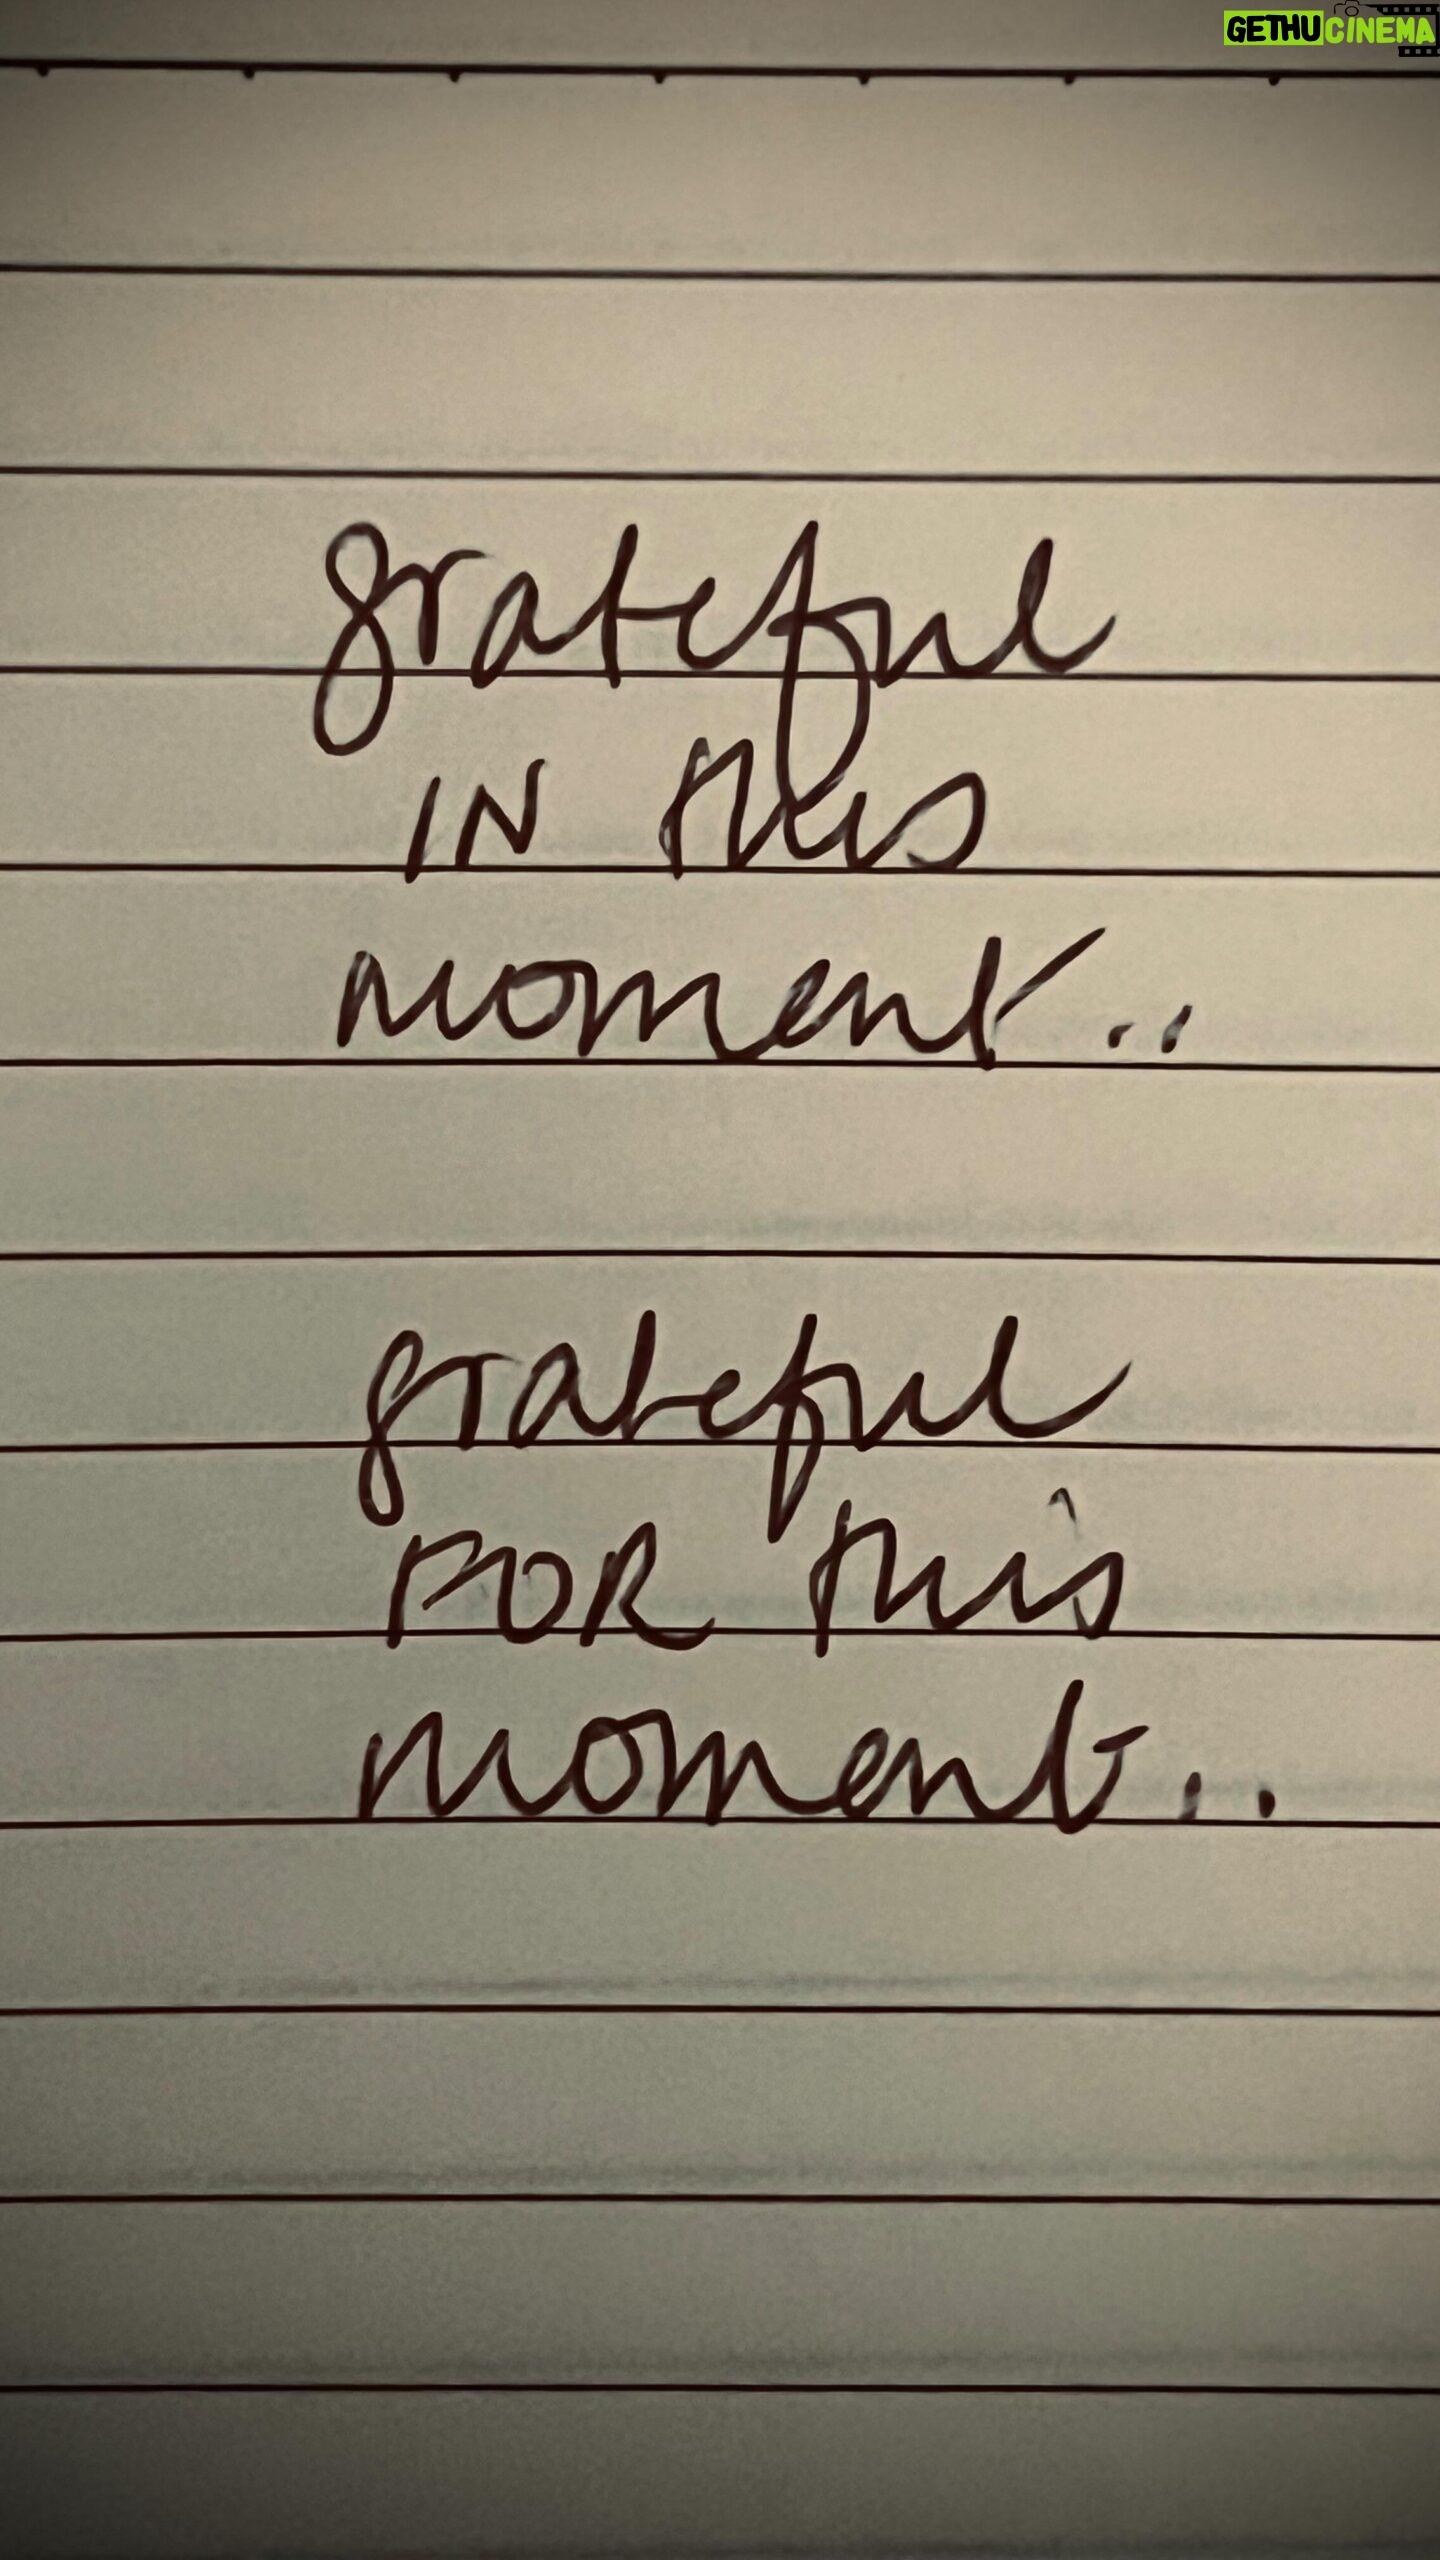 GETHUCINEMA
grateful
IN this
moment..
grateful
FOR this
moment..